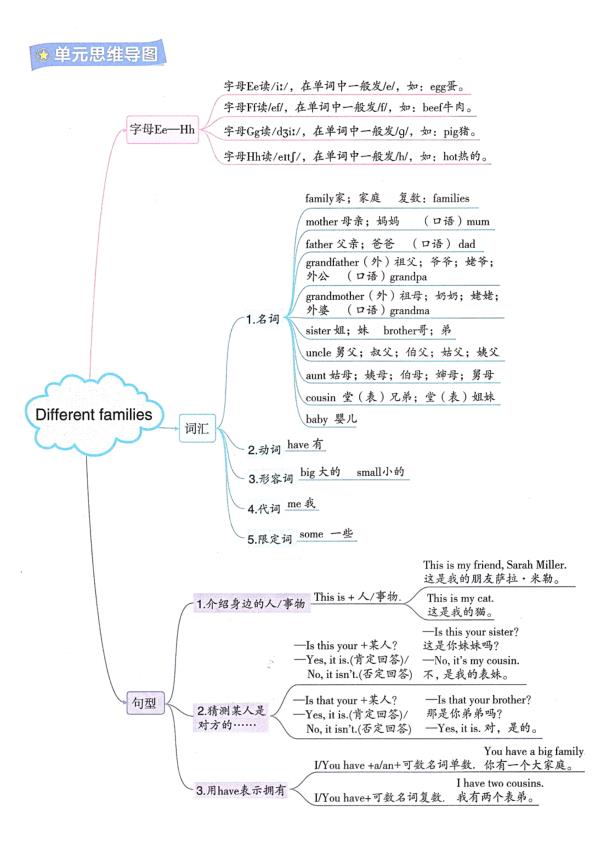 单元思维导图
字母Ee—Hh
字母Ee读/iː/，在单词中一般发/e/，如：egg蛋。
字母Ff读/ef/，在单词中一般发/f/，如：beef牛肉。
字母Gg读/dʒiː/，在单词中一般发/ɡ/，如：pig猪。
字母Hh读/eɪtʃ/，在单词中一般发/h/，如：hot热的。
Different families
词汇
1.名词
family家；家庭 复数：families
mother 母亲；妈妈 （口语）mum
father 父亲；爸爸 （口语）dad
grandfather（外）祖父；爷爷；姥爷；
外公 （口语）grandpa
grandmother（外）祖母；奶奶；姥姥；
外婆 （口语）grandma
sister 姐；妹 brother哥；弟
uncle 舅父；叔父；伯父；姑父；姨父
aunt 姑母；姨母；伯母；婶母；舅母
cousin 堂（表）兄弟；堂（表）姐妹
baby 婴儿
2.动词 have 有
3.形容词 big 大的 small小的
4.代词 me 我
5.限定词 some 一些
句型
1.介绍身边的人/事物
This is + 人/事物.
This is my friend, Sarah Miller.
这是我的朋友萨拉·米勒。
This is my cat.
这是我的猫。
2.猜测某人是
对方的……
—Is this your +某人？
—Yes, it is.(肯定回答)/
No, it isn't.(否定回答)
—Is this your sister?
这是你妹妹吗？
—No, it's my cousin.
不，是我的表妹。
—Is that your +某人？
—Yes, it is.(肯定回答)/
No, it isn't.(否定回答)
—Is that your brother?
那是你弟弟吗？
—Yes, it is. 对，是的。
3.用have表示拥有
I/You have +a/an+可数名词单数.
You have a big family
你有一个大家庭。
I/You have+可数名词复数.
I have two cousins.
我有两个表弟。